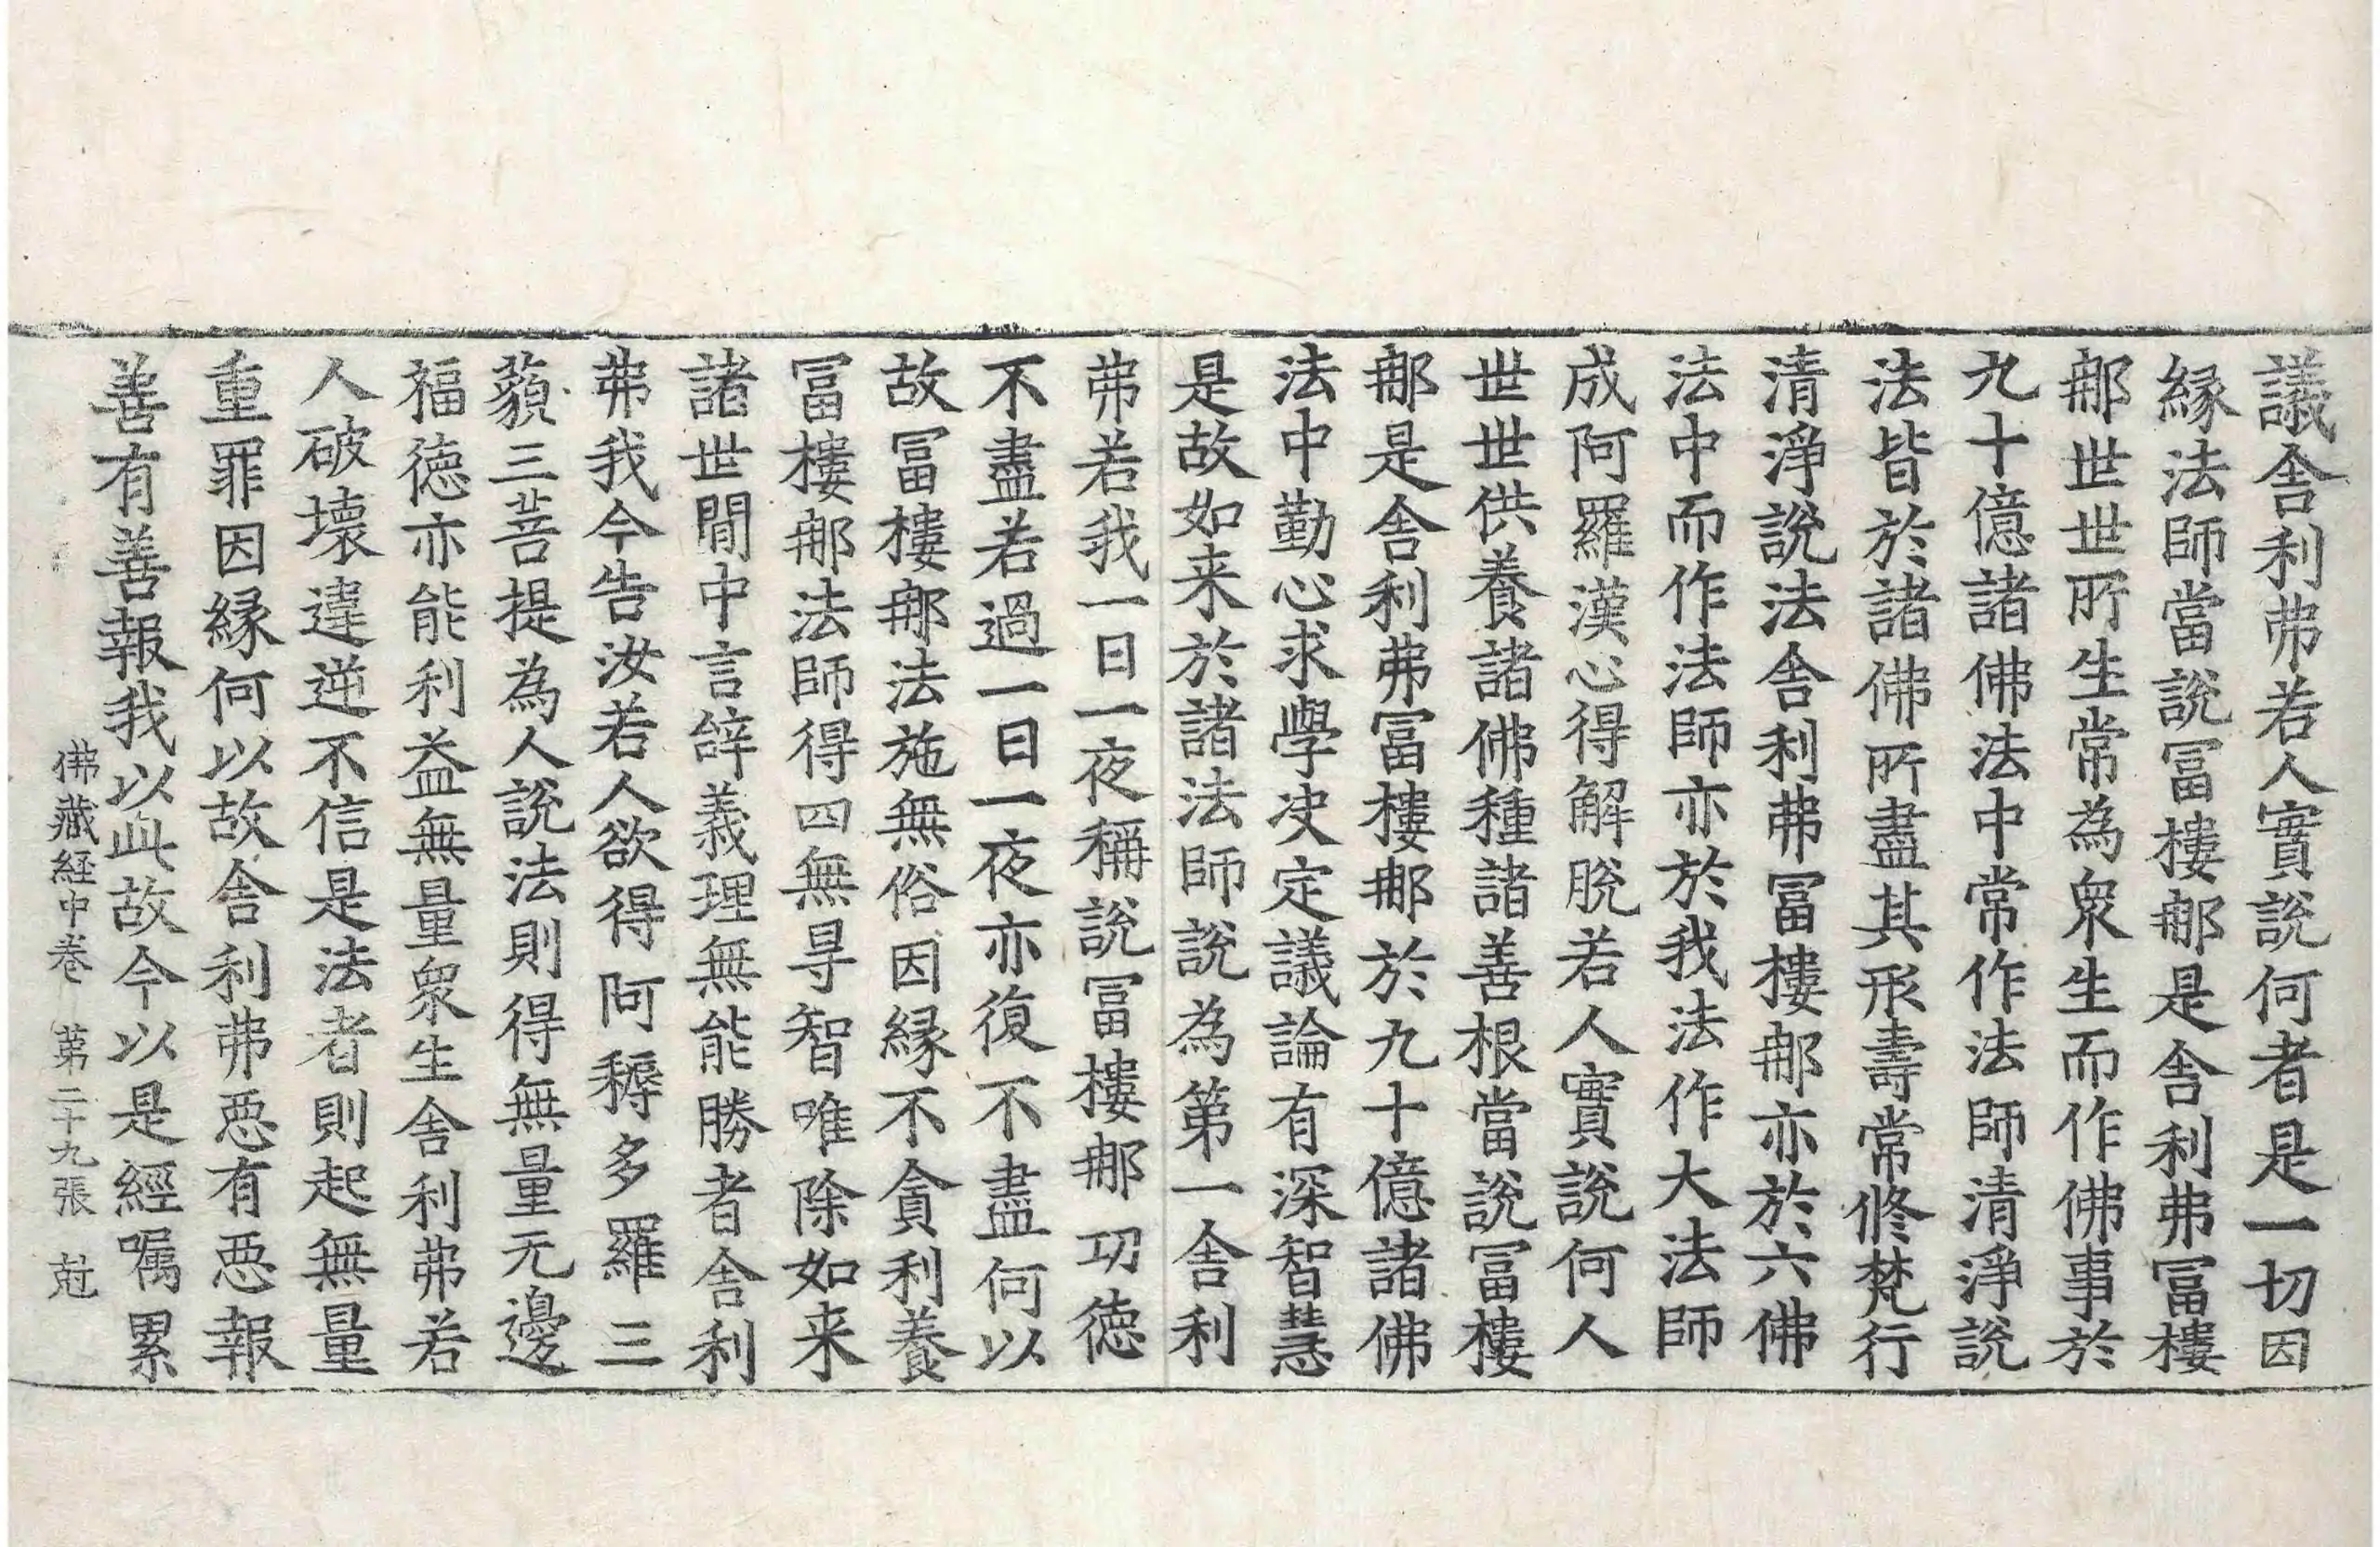 議舎利弗若人實說何者是一切因
縁法師當說冨樓那是舎利弗冨樓
那世世所生常為衆生而作佛事於
九十億諸佛法中常作法師清淨說
法皆於諸佛所盡其形壽常修梵行
清淨說法舎利弗冨樓那亦於六佛
法中而作法師亦於我法作大法師
成阿羅漢心得解脫若人實說何人
世世供養諸佛種諸善根當說冨樓
那是舎利弗冨樓那於九十億諸佛
法中勤心求學决定議論有深智慧
是故如来於諸法師說為第一舎利
弗若我一日一夜稱說冨樓那功徳
不盡若過一日一夜亦復不盡何以
故冨樓那法施無俗因縁不貪利養
冨樓那法師得四無㝵智唯除如来
諸世間中言辝義理無能勝者舎利
弗我今告汝若人欲得阿耨多羅三
藐三菩提為人說法則得無量无邊
福徳亦能利益無量衆生舎利弗若
人破壞違逆不信是法者則起無量
重罪因縁何以故舎利弗惡有惡報
善有善報我以此故今以是經嘱累
佛藏経中巻 第二十九張 尅